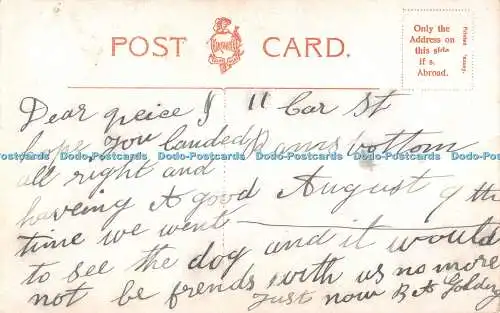 POST CARD.
Only the
Address on
this side
if s.
Abroad.
Dear neice I
hope you landed
all right and
haveing A good
time we went
to see the dog and it would
not be frends with us no more
Just now
11 Car St
Ramsbottom
August 9th
Dodo-Postcards Dodo-Postcards Dodo-Postcards Dodo-Postcards Dodo-Postcards Dodo-Postcards Dodo-Postcards